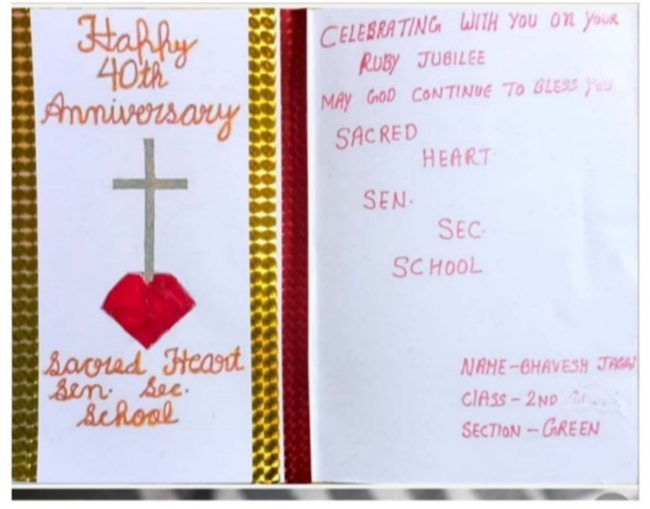 Happy
40th
Anniversary
Sacred Heart
Sen. Sec.
School
CELEBRATING WITH YOU ON YOUR
RUBY JUBILEE
MAY GOD CONTINUE TO BLESS YOU
SACRED
HEART
SEN.
SEC.
SCHOOL
NAME-BHAVESH
CLASS-2ND
SECTION-GREEN